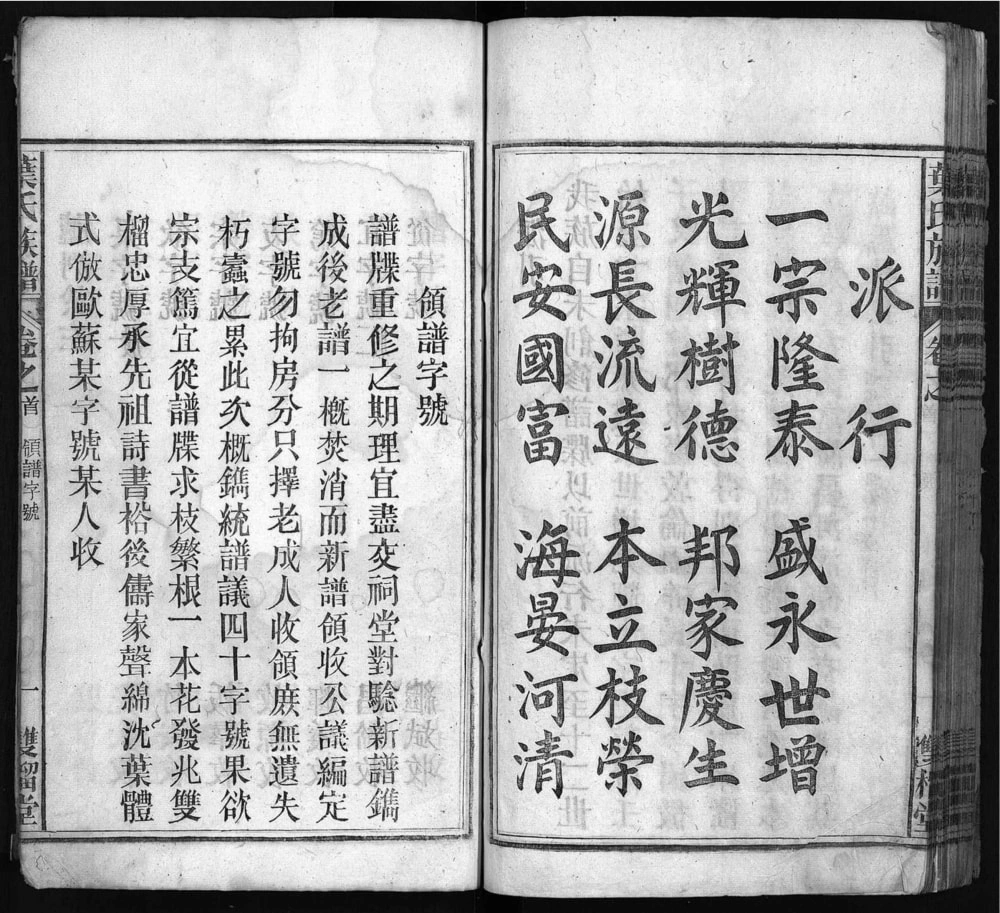 葉氏族譜 卷之
雙榴堂
派行
一宗隆泰 盛永世增
光輝樹德 邦家慶生
源長流遠 本立枝榮
民安國富 海晏河清
領譜字號
譜牒重修之期理宜盡交祠堂對驗新譜鐫
成後老譜一概焚消而新譜領收公議編定
字號勿拘房分只擇老成人收領庶無遺失
朽蠹之累此次概鐫統譜議四十字號果欲
宗支篤宜從譜牒求枝繁根一本花發兆雙
榴忠厚承先祖詩書裕後儔家聲綿沈葉體
式倣歐蘇某字號某人收
葉氏族譜 卷之首 領譜字號 一 雙榴堂